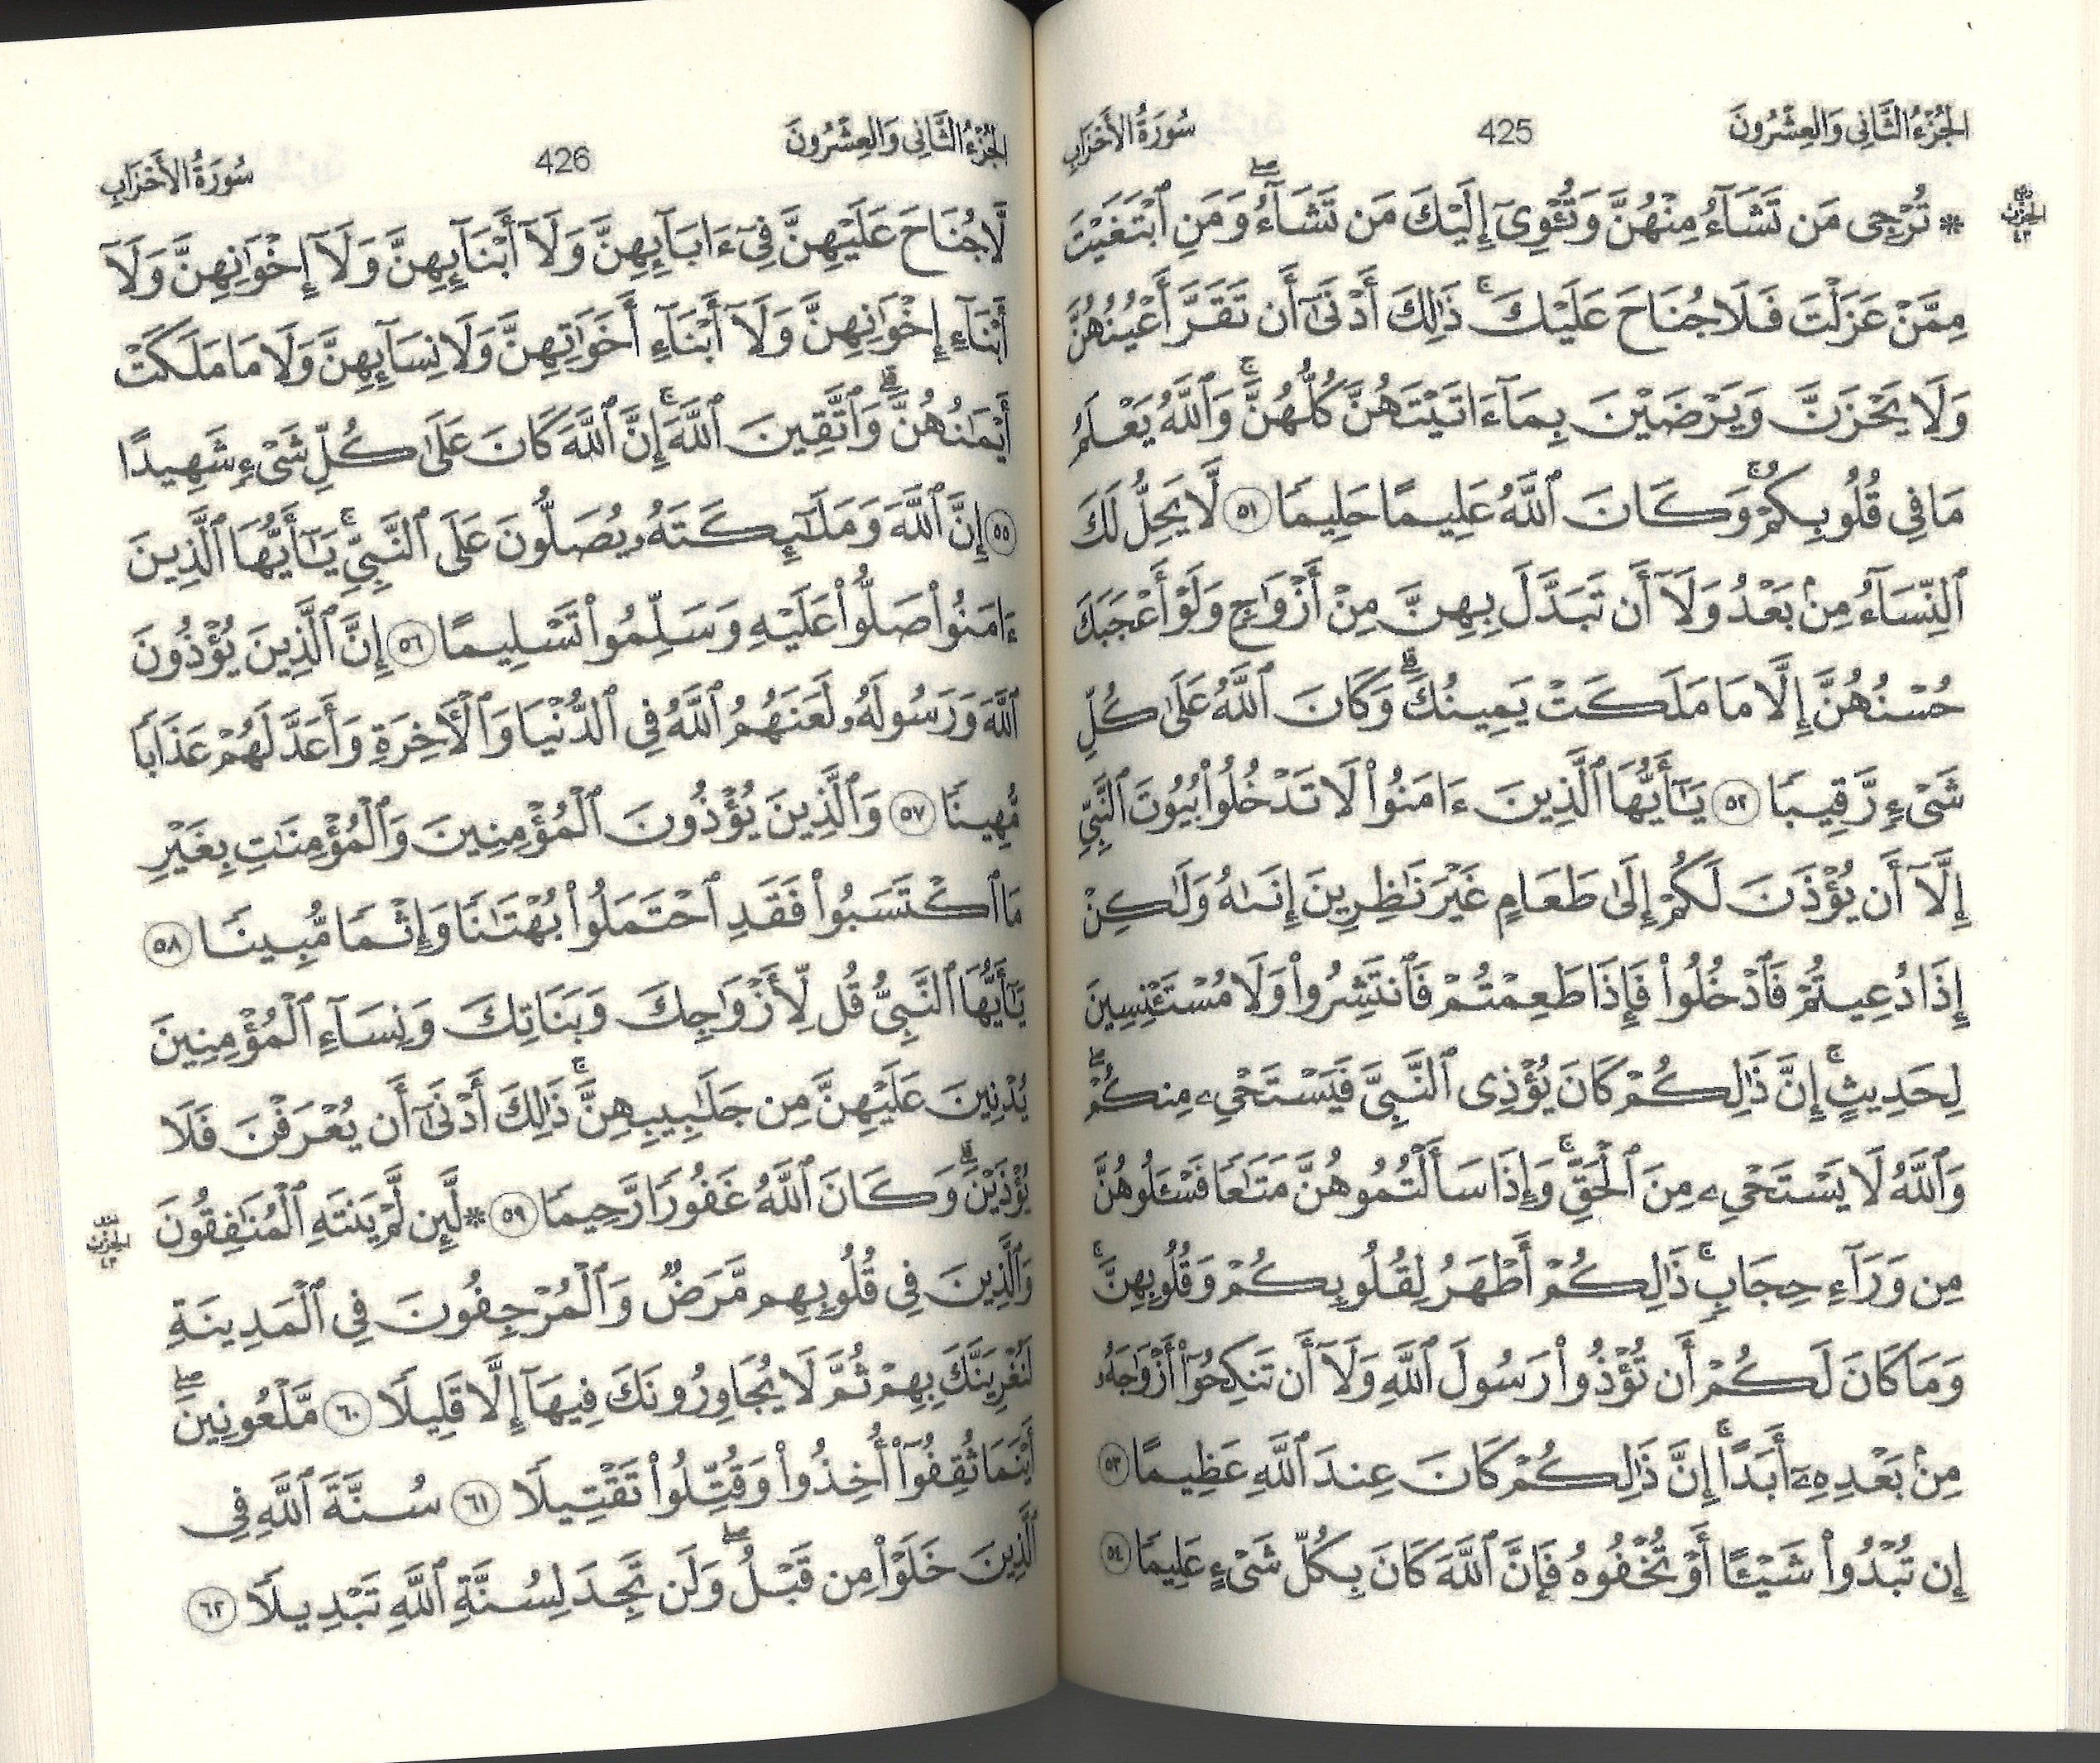 الجزء الثاني والعشرون
425
سورة الأحزاب
* تُرْجِي مَن تَشَآءُ مِنْهُنَّ وَتُـْٔوِيٓ إِلَيْكَ مَن تَشَآءُۖ وَمَنِ ٱبْتَغَيْتَ
مِمَّنْ عَزَلْتَ فَلَا جُنَاحَ عَلَيْكَۚ ذَٰلِكَ أَدْنَىٰٓ أَن تَقَرَّ أَعْيُنُهُنَّ
وَلَا يَحْزَنَّ وَيَرْضَيْنَ بِمَآ ءَاتَيْتَهُنَّ كُلُّهُنَّۚ وَٱللَّهُ يَعْلَمُ
مَا فِي قُلُوبِكُمْۚ وَكَانَ ٱللَّهُ عَلِيمًا حَلِيمًا ٥١ لَّا يَحِلُّ لَكَ
ٱلنِّسَآءُ مِنۢ بَعْدُ وَلَآ أَن تَبَدَّلَ بِهِنَّ مِنْ أَزْوَٰجٍ وَلَوْ أَعْجَبَكَ
حُسْنُهُنَّ إِلَّا مَا مَلَكَتْ يَمِينُكَۗ وَكَانَ ٱللَّهُ عَلَىٰ كُلِّ
شَىْءٍ رَّقِيبًا ٥٢ يَـٰٓأَيُّهَا ٱلَّذِينَ ءَامَنُوا۟ لَا تَدْخُلُوا۟ بُيُوتَ ٱلنَّبِىِّ
إِلَّآ أَن يُؤْذَنَ لَكُمْ إِلَىٰ طَعَامٍ غَيْرَ نَـٰظِرِينَ إِنَىٰهُ وَلَـٰكِنْ
إِذَا دُعِيتُمْ فَٱدْخُلُوا۟ فَإِذَا طَعِمْتُمْ فَٱنتَشِرُوا۟ وَلَا مُسْتَـْٔنِسِينَ
لِحَدِيثٍۚ إِنَّ ذَٰلِكُمْ كَانَ يُؤْذِى ٱلنَّبِىَّ فَيَسْتَحْىِۦ مِنكُمْۖ
وَٱللَّهُ لَا يَسْتَحْىِۦ مِنَ ٱلْحَقِّۚ وَإِذَا سَأَلْتُمُوهُنَّ مَتَـٰعًا فَسْـَٔلُوهُنَّ
مِن وَرَآءِ حِجَابٍۚ ذَٰلِكُمْ أَطْهَرُ لِقُلُوبِكُمْ وَقُلُوبِهِنَّۚ
وَمَا كَانَ لَكُمْ أَن تُؤْذُوا۟ رَسُولَ ٱللَّهِ وَلَآ أَن تَنكِحُوٓا۟ أَزْوَٰجَهُۥ
مِنۢ بَعْدِهِۦٓ أَبَدًاۚ إِنَّ ذَٰلِكُمْ كَانَ عِندَ ٱللَّهِ عَظِيمًا ٥٣
إِن تُبْدُوا۟ شَيْـًٔا أَوْ تُخْفُوهُ فَإِنَّ ٱللَّهَ كَانَ بِكُلِّ شَىْءٍ عَلِيمًا ٥٤
الجزء الثاني والعشرون
426
سورة الأحزاب
لَّا جُنَاحَ عَلَيْهِنَّ فِىٓ ءَابَآئِهِنَّ وَلَآ أَبْنَآئِهِنَّ وَلَآ إِخْوَٰنِهِنَّ وَلَآ
أَبْنَآءِ إِخْوَٰنِهِنَّ وَلَآ أَبْنَآءِ أَخَوَٰتِهِنَّ وَلَا نِسَآئِهِنَّ وَلَا مَا مَلَكَتْ
أَيْمَـٰنُهُنَّۗ وَٱتَّقِينَ ٱللَّهَۚ إِنَّ ٱللَّهَ كَانَ عَلَىٰ كُلِّ شَىْءٍ شَهِيدًا
٥٥ إِنَّ ٱللَّهَ وَمَلَـٰٓئِكَتَهُۥ يُصَلُّونَ عَلَى ٱلنَّبِىِّۚ يَـٰٓأَيُّهَا ٱلَّذِينَ
ءَامَنُوا۟ صَلُّوا۟ عَلَيْهِ وَسَلِّمُوا۟ تَسْلِيمًا ٥٦ إِنَّ ٱلَّذِينَ يُؤْذُونَ
ٱللَّهَ وَرَسُولَهُۥ لَعَنَهُمُ ٱللَّهُ فِى ٱلدُّنْيَا وَٱلْـَٔاخِرَةِ وَأَعَدَّ لَهُمْ عَذَابًا
مُّهِينًا ٥٧ وَٱلَّذِينَ يُؤْذُونَ ٱلْمُؤْمِنِينَ وَٱلْمُؤْمِنَـٰتِ بِغَيْرِ
مَا ٱكْتَسَبُوا۟ فَقَدِ ٱحْتَمَلُوا۟ بُهْتَـٰنًا وَإِثْمًا مُّبِينًا ٥٨
يَـٰٓأَيُّهَا ٱلنَّبِىُّ قُل لِّأَزْوَٰجِكَ وَبَنَاتِكَ وَنِسَآءِ ٱلْمُؤْمِنِينَ
يُدْنِينَ عَلَيْهِنَّ مِن جَلَـٰبِيبِهِنَّۚ ذَٰلِكَ أَدْنَىٰٓ أَن يُعْرَفْنَ فَلَا
يُؤْذَيْنَۗ وَكَانَ ٱللَّهُ غَفُورًا رَّحِيمًا ٥٩ * لَّئِن لَّمْ يَنتَهِ ٱلْمُنَـٰفِقُونَ
وَٱلَّذِينَ فِى قُلُوبِهِم مَّرَضٌ وَٱلْمُرْجِفُونَ فِى ٱلْمَدِينَةِ
لَنُغْرِيَنَّكَ بِهِمْ ثُمَّ لَا يُجَاوِرُونَكَ فِيهَآ إِلَّا قَلِيلًا ٦٠ مَّلْعُونِينَۖ
أَيْنَمَا ثُقِفُوٓا۟ أُخِذُوا۟ وَقُتِّلُوا۟ تَقْتِيلًا ٦١ سُنَّةَ ٱللَّهِ فِى
ٱلَّذِينَ خَلَوْا۟ مِن قَبْلُۖ وَلَن تَجِدَ لِسُنَّةِ ٱللَّهِ تَبْدِيلًا ٦٢